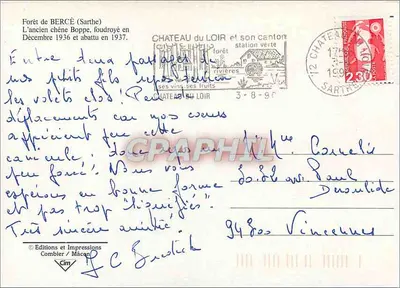 Forêt de BERCÉ (Sarthe)
L'ancien chêne Boppe, foudroyé en
décembre 1936 et abattu en 1937.
CHATEAU du LOIR et son canton
station verte
forêt
rivières
ses vins, ses fruits
CHATEAU DU LOIR
3-8-90
72 CHATEAU
SARTHE
2,30
Entre deux passages de
nos petits fils nous
les volets clos! Peu de
déplacements car nos coeurs
apprécient peu cette
canicule;
forêt! Nous vous
espérons en bonne forme
et pas trop "liquéfiés".
Très sincère amitié.
CARTHAPHIL
30.32 av. Paul
Deroulède
94300 Vincennes
© Editions et Impressions
Combier / Mâcon
Cim